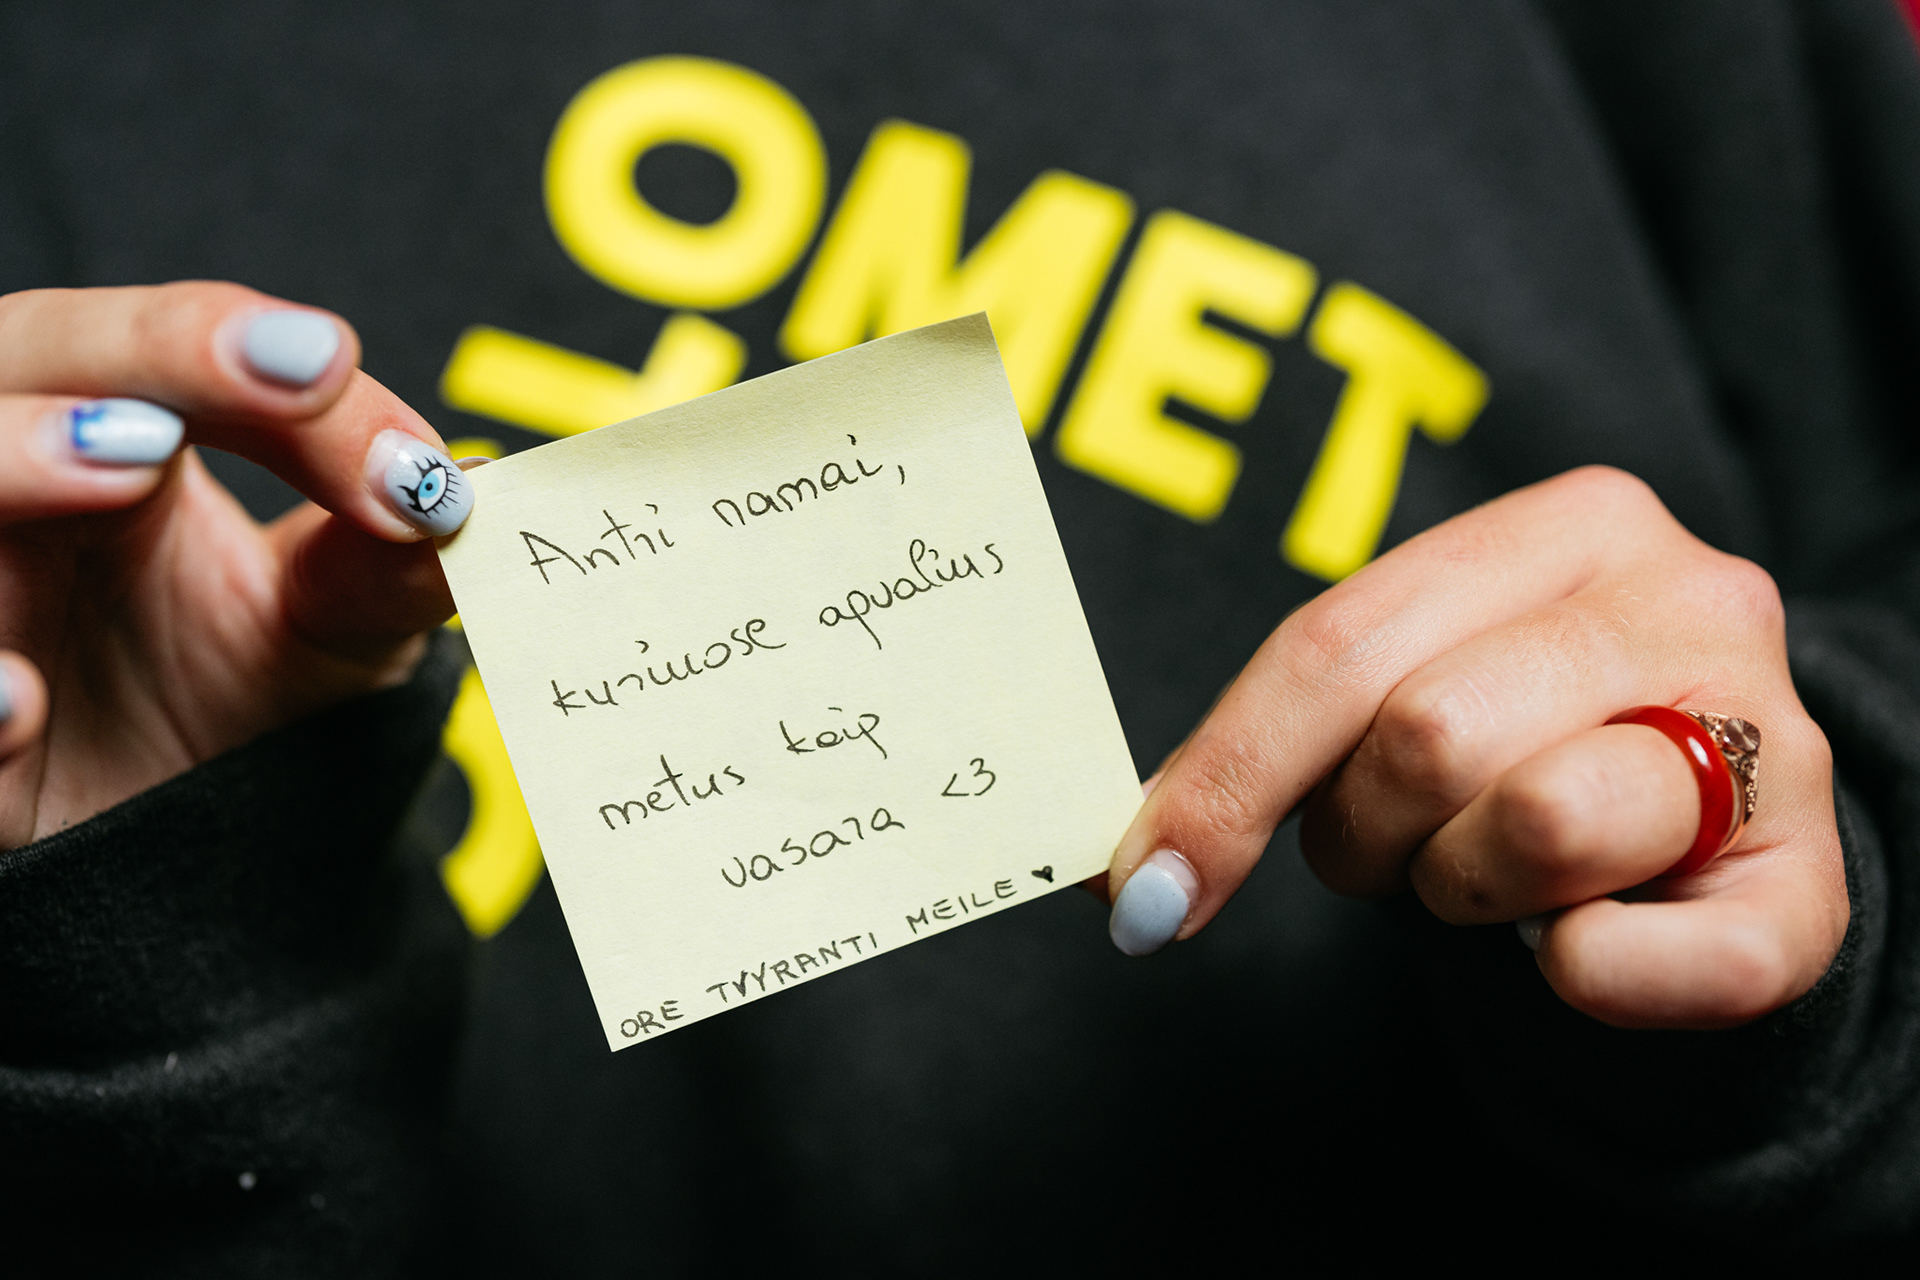 OMET
Antri namai,
kuriuose apvalius
metus kaip
vasara <3
ORE TVYRANTI MEILE ♥